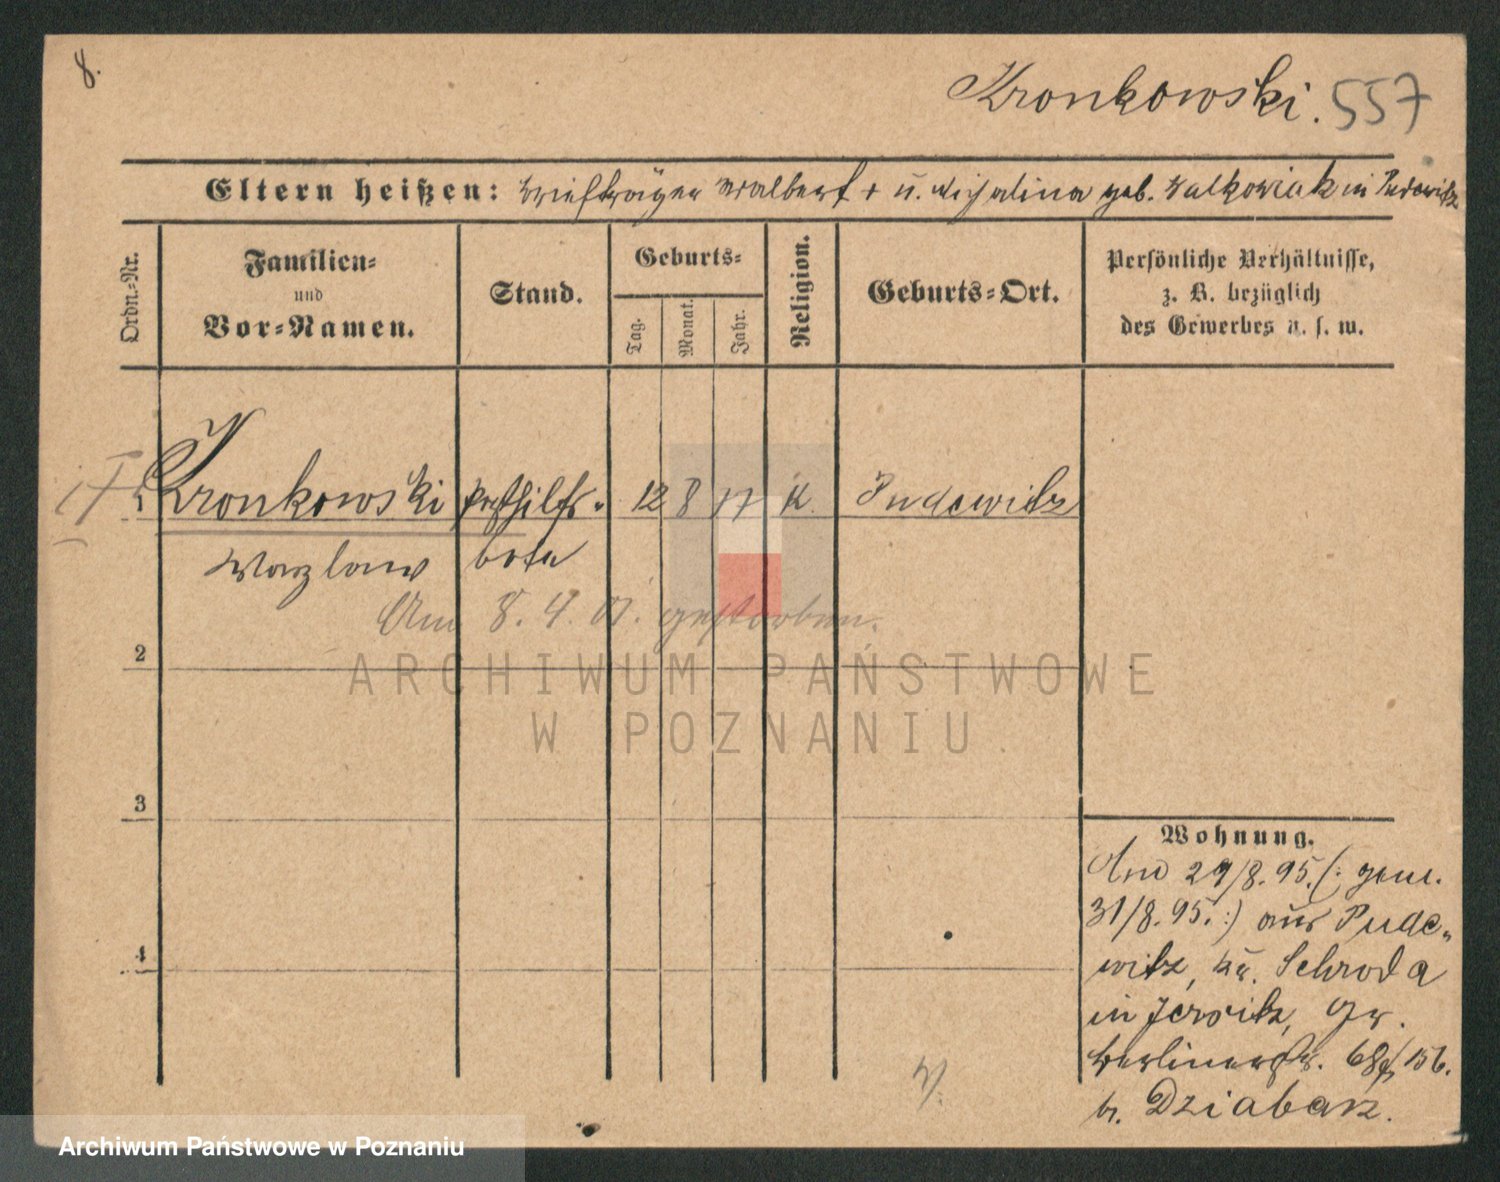 8.
Kronkowski. 557
Eltern heißen: Briefträger Walbert + u. Michalina geb. Walkowiak in Pudewitz
Ordn.-Nr.
Familien-
und
Vor-Namen.
Stand.
Geburts-
Tag.
Monat.
Jahr.
Religion.
Geburts-Ort.
Persönliche Verhältnisse,
z. B. bezüglich
des Gewerbes u. s. w.
Kronkowski Posthilfs- 12 8 77 K. Pudewitz
Wazlaw bote
Am 8. 4. 01. gestorben.
2
ARCHIWUM PAŃSTWOWE
W POZNANIU
3
4
Wohnung.
Anw 29/8. 95. (: gem.
31/8. 95. :) aus Pude-
witz, Kr. Schroda
in Jersitz, Gr.
Berlinerstr. 68/156.
b. Dziabasz.
Archiwum Państwowe w Poznaniu